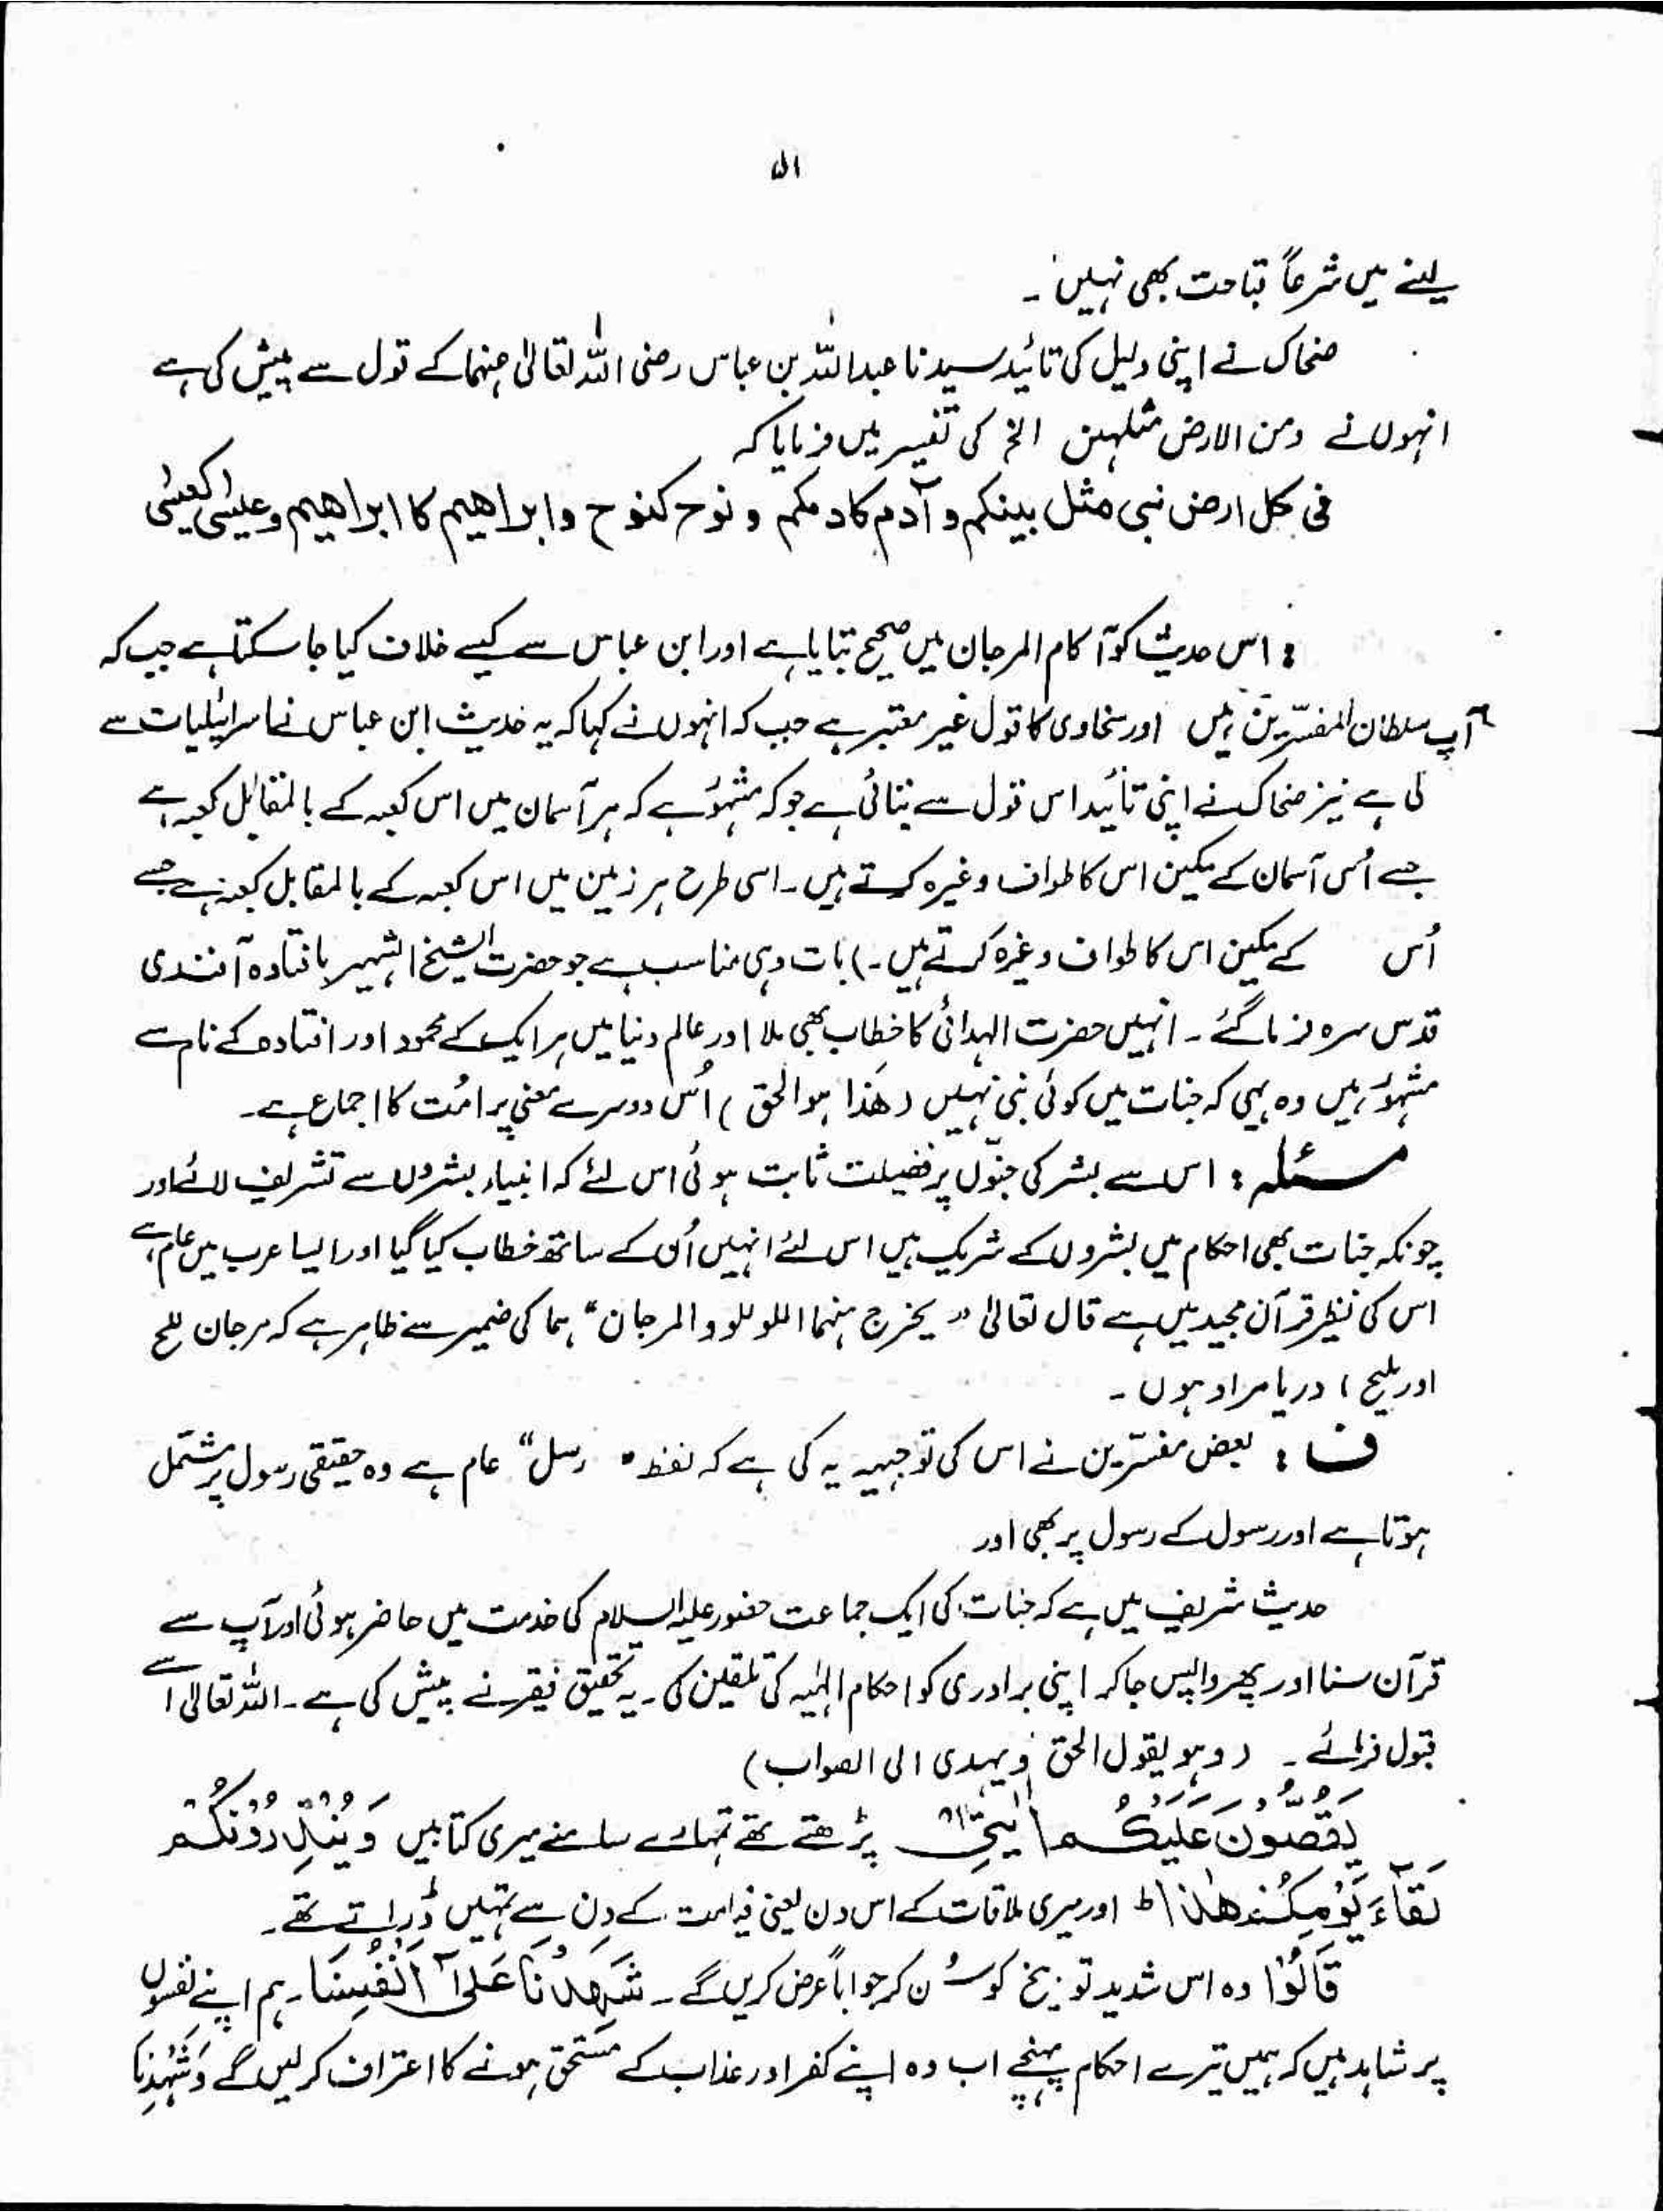 ۵۱
لینے میں شرعاً قباحت بھی نہیں۔
ضحاک نے اپنی دلیل کی تائید سیدنا عبداللہ بن عباس رضی اللہ تعالیٰ عنہما کے قول سے پیش کی ہے
انہوں نے ومن الارض مثلہن الخ کی تفسیر میں فرمایا کہ
فی کل ارض نبی مثل بینکم و آدم کادمکم و نوح کنوح وابراھیم کا ابراھیم وعیسٰی کعیسٰی
: اس حدیث کو آکام المرجان میں صحیح بتایا ہے اور ابن عباس سے کیسے خلاف کیا جا سکتا ہے جب کہ
آپ سلطان المفسّرین ہیں اور سخاوی کا قول غیر معتبر ہے جب کہ انہوں نے کہا کہ یہ حدیث ابن عباس نے اسرائیلیات سے
لی ہے نیز ضحاک نے اپنی تائید اس قول سے بتائی ہے جو کہ مشہور ہے کہ ہر آسمان میں اس کعبہ کے بالمقابل کعبہ ہے
جسے اُس آسمان کے مکین اس کا طواف وغیرہ کرتے ہیں۔ اسی طرح ہر زمین میں اس کعبہ کے بالمقابل کعبہ ہے جسے
اُس کے مکین اس کا طواف وغیرہ کرتے ہیں۔) بات وہی مناسب ہے جو حضرت الشیخ الشہیر بافتادہ آفندی
قدس سرہ فرما گئے۔ انہیں حضرت الہدائی کا خطاب بھی ملا اور عالم دنیا میں ہر ایک کے محمود اور افتادہ کے نام سے
مشہور ہیں وہ یہی کہ جنات میں کوئی نبی نہیں (ھٰذا ہو الحق) اُس دوسرے معنی پر امُت کا اجماع ہے۔
مسئلہ : اس سے بشر کی جنّوں پر فضیلت ثابت ہوئی اس لئے کہ انبیاء بشروں سے تشریف لائے اور
چونکہ جنات بھی احکام میں بشروں کے شریک ہیں اس لئے انہیں اُن کے ساتھ خطاب کیا گیا اور ایسا عرب میں عام ہے
اس کی نظیر قرآن مجید میں ہے قال تعالیٰ " یخرج منہما اللولو والمرجان" ہما کی ضمیر سے ظاہر ہے کہ مرجان ملح
اور ملیح ) دریا مراد ہوں۔
ف : بعض مفسّرین نے اس کی توجیہہ یہ کی ہے کہ لفظ " رسل" عام ہے وہ حقیقی رسول پر مشتمل
ہوتا ہے اور رسول کے رسول پر بھی اور
حدیث شریف میں ہے کہ جنات کی ایک جماعت حضور علیہ السلام کی خدمت میں حاضر ہوئی اور آپ سے
قرآن سنا اور پھر واپس جاکر اپنی برادری کو احکام الہٰیہ کی تلقین کی۔ یہ تحقیق فقیر نے پیش کی ہے۔ اللہ تعالیٰ اسے
قبول فرمائے۔ (وہو یقول الحق ویہدی الی الصواب)
یَقُصُّوْنَ عَلَیْکُمْ اٰیٰتِیْ پڑھتے تھے تمہارے سامنے میری کتابیں وَیُنْذِرُوْنَکُمْ
لِقَآءَ یَوْمِکُمْ ھٰذَا ط اور میری ملاقات کے اس دن یعنی قیامت کے دن سے تمہیں ڈراتے تھے۔
قَالُوْا وہ اس شدید توبیخ کو سُن کر جواباً عرض کریں گے۔ شَہِدْنَا عَلٰٓی اَنْفُسِنَا۔ ہم اپنے نفسوں
پر شاہد ہیں کہ ہمیں تیرے احکام پہنچے اب وہ اپنے کفر اور عذاب کے مستحق ہونے کا اعتراف کرلیں گے وَشَہِدْنَا